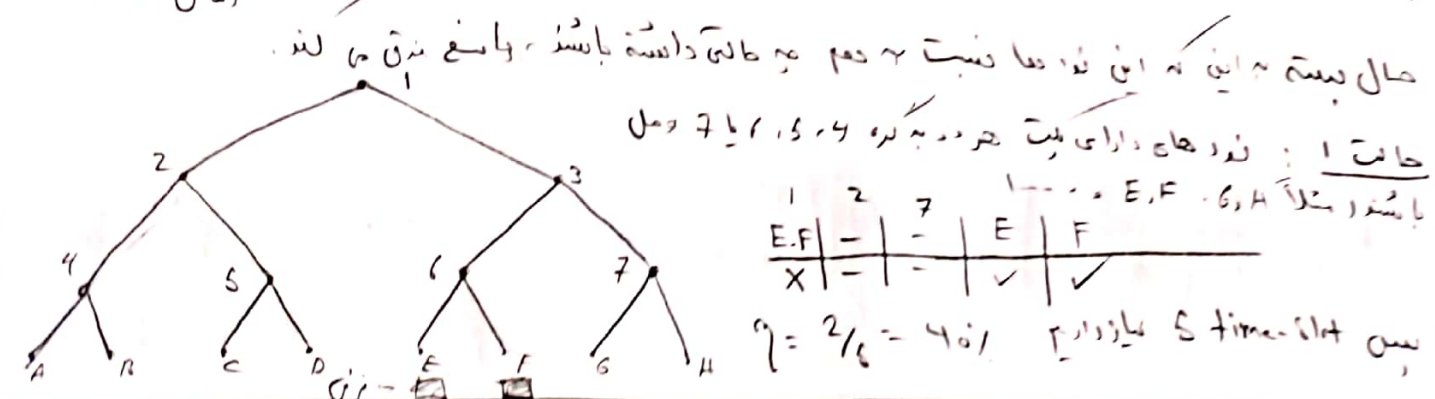 حال بسته به این که این نودها نسبت به هم چه حالتی داشته باشند، پاسخ فرق می کند.
حالت ۱ : نودهای دارای پکیت هر دو به گره 4، 5، 6 یا 7 وصل
باشند مثلاً G,H . E,F
1
2 3
4 5 6 7
A B C D E F G H
1 2 7
E.F - - E F
X - - ✓ ✓
پس 5 time-slot نیاز داریم η = 2/5 = 40%